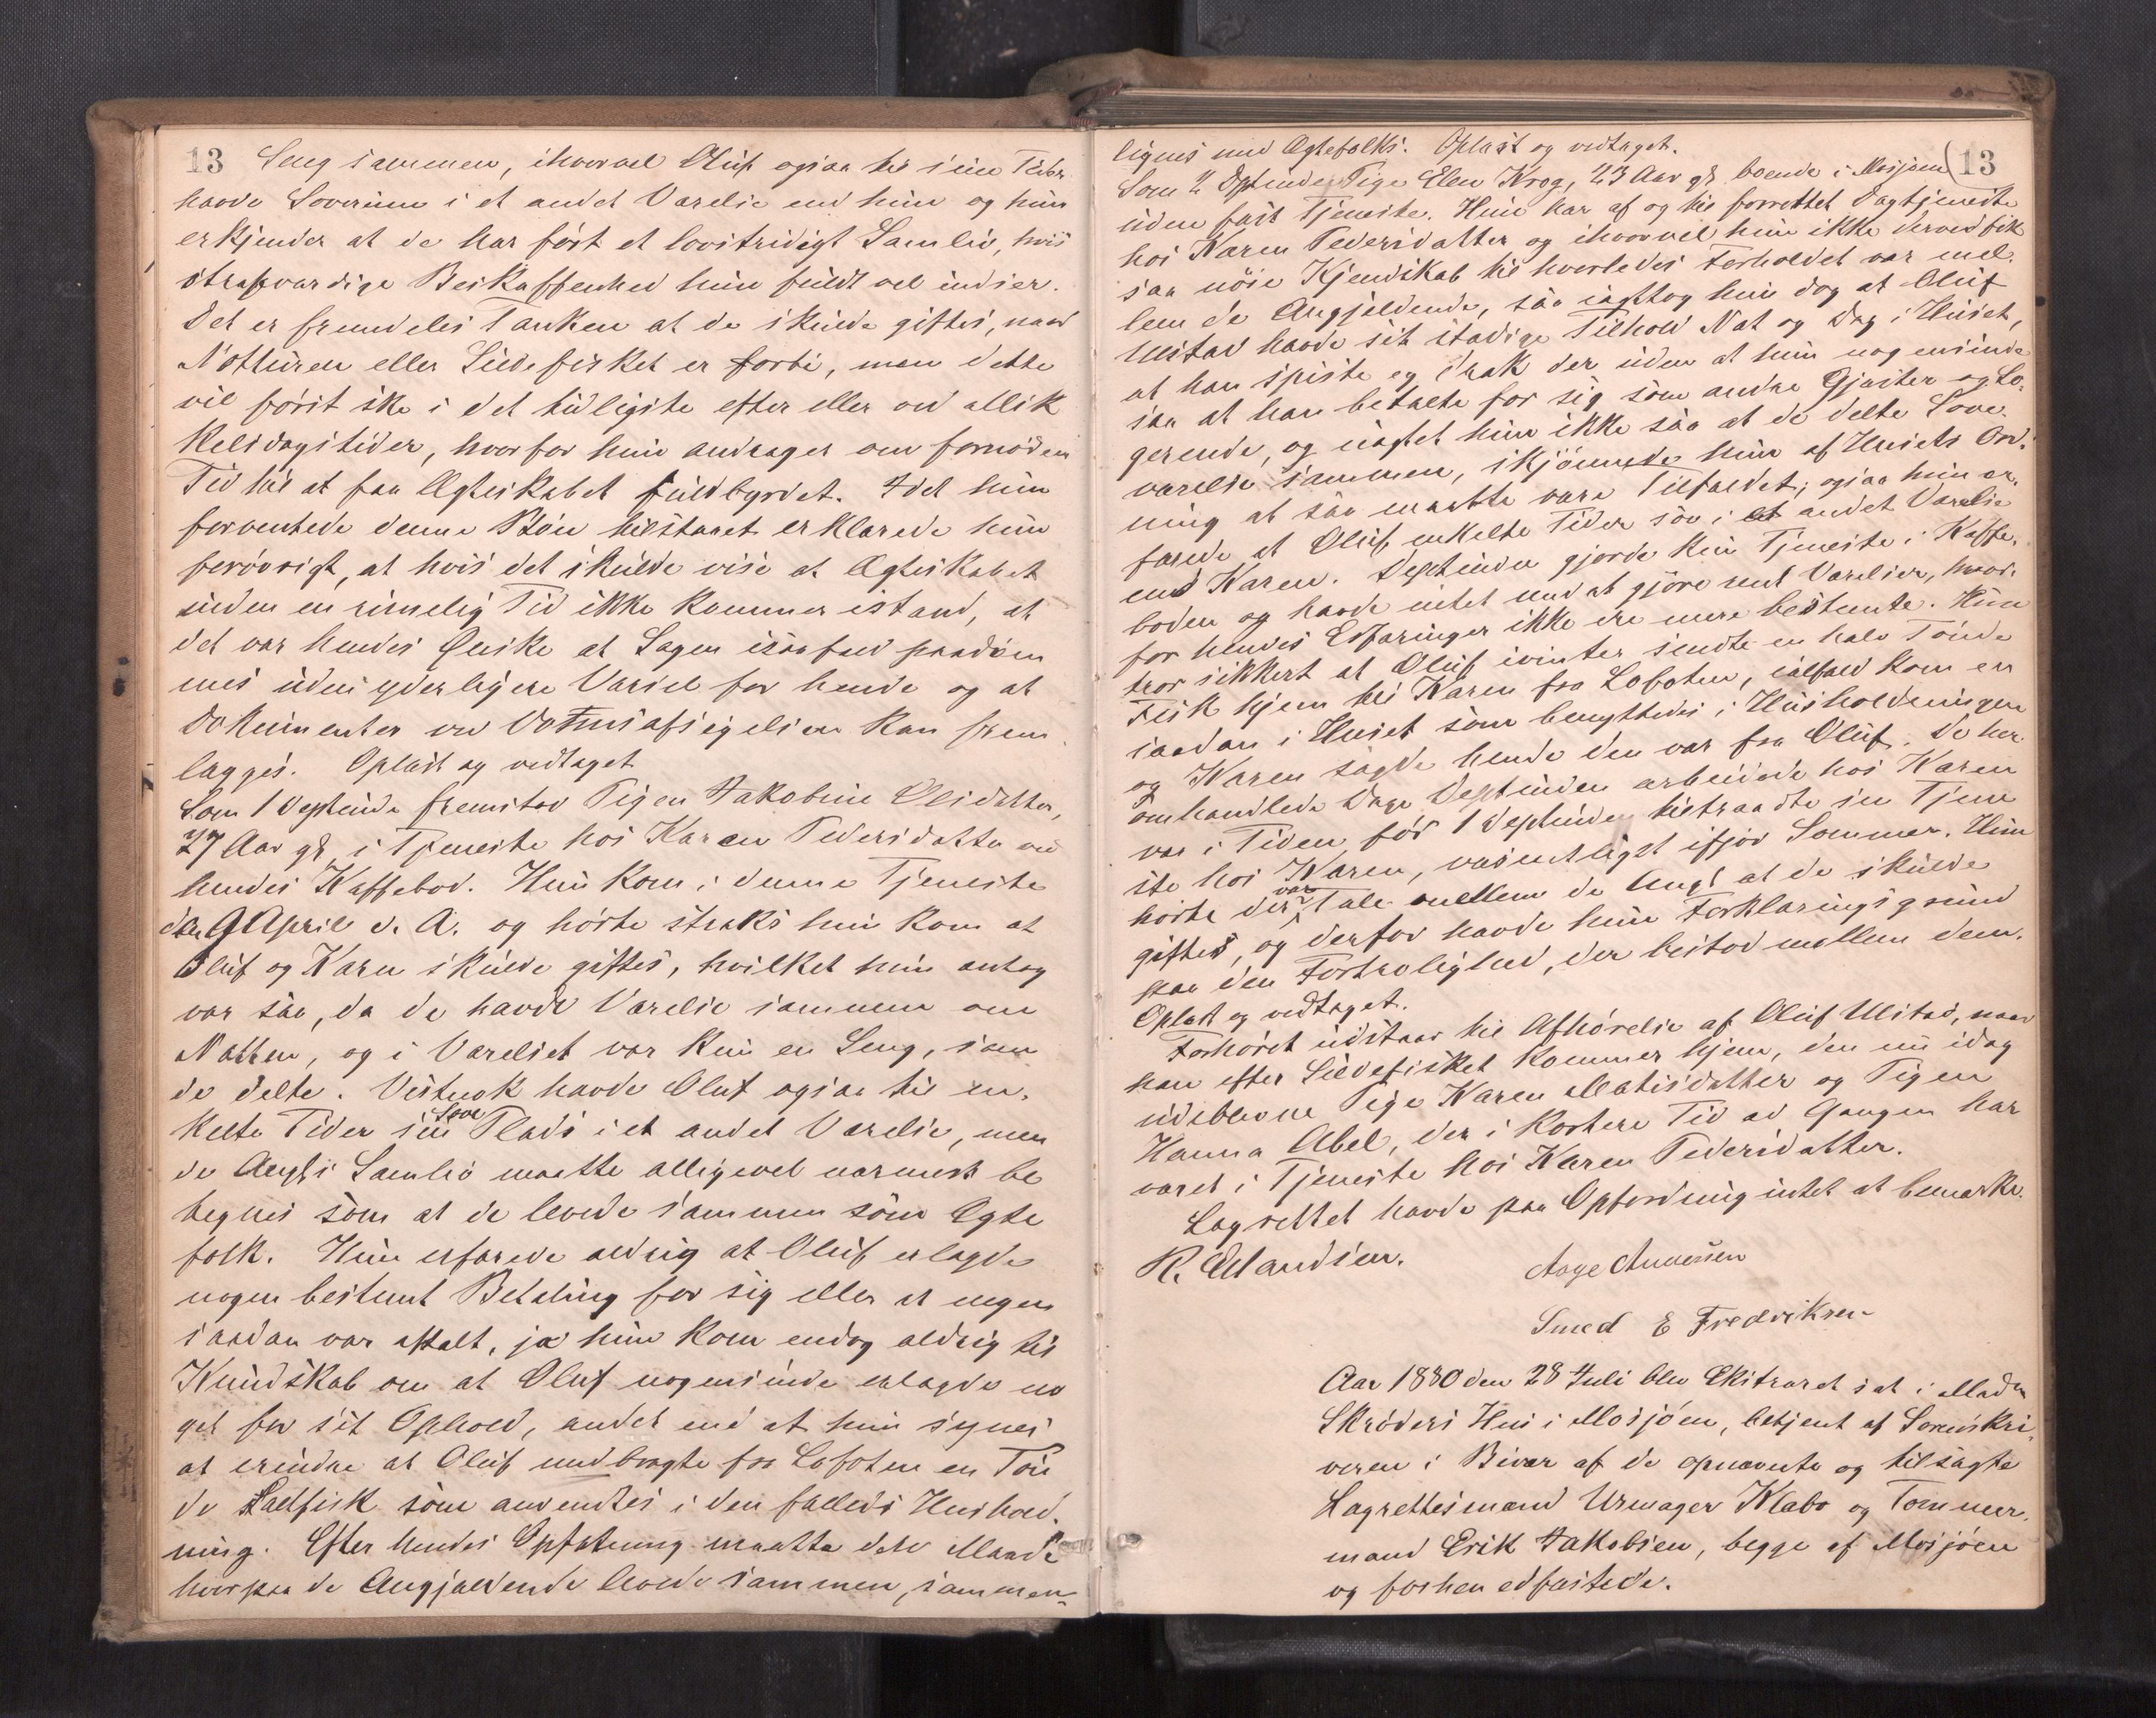 13 Seng sammen, ihvorvel Oluf ogsaa til sine Tider
havde Soverum i et andet Værelse end hun og hun
erkjender at de har ført et lovstridigt Samliv, hvis
strafværdige Beskaffenhed hun fuldt vel indser.
Det er fremdeles Tanken at de skulde giftes, naar
Notturen eller Sildefisket er forbi, men dette
vil først ske i det tidligste efter eller ved allik
kelsdagstider, hvorfor hun andrager om fornøden
Tid til at faa Ægteskabet fuldbyrdet. Idet hun
forventede denne Bøn tilstaaet erklærede hun
forøvrigt, at hvis det skulde vise at Ægteskabet
inden en rimelig Tid ikke kommer istand, at
det var hendes Ønske at Sagen isaafald paadøm
mes uden yderligere Varsel for hende og at
Dokumenter ved Domsafsigelsen kan frem
lægges. Oplæst og vedtaget
Som 1 Deptinde fremstod Pigen Jakobine Olsdatter,
27 Aar gl, i Tjeneste hos Karen Pedersdatter ved
hendes Kaffebod. Hun kom i denne Tjeneste
den 9 April d. A. og hørte straks hun kom at
Oluf og Karen skulde giftes, hvilket hun antog
var saa, da de havde Værelse sammen om
Natten, og i Værelset var kun en Seng, som
de delte. Vistnok havde Oluf ogsaa til en-
kelte Tider sin Sove Plads i et andet Værelse, men
de Angjs Samliv maatte alligevel nærmest be
tegnes som at de levede sammen som Ægte
folk. Hun erfarede aldrig at Oluf erlagde
nogen bestemt Betaling for sig eller at nogen
saadan var aftalt, ja hun kom endog aldrig til
Kundskab om at Oluf nogensinde erlagde no
get for sit Ophold, andet end at hun synes
at erindre at Oluf medbragte fra Lofoten en Tøn
de Saltfisk som anvendtes i den fælleds Hushold-
ning. Efter hendes Opfatning maatte den Maade
hvorpaa de Angjældende levede sammen, sammen-
lignes med Ægtefolks. Oplæst og vedtaget. 13
Som 2 Deptinde Pige Elen Krog, 23 Aar gl, boende i Mosjøen
uden fast Tjeneste. Hun har af og til forrettet Dagtjeneste
hos Karen Pedersdatter og ihvorvel hun ikke derved fik
saa nøie Kjendskab til hvorledes Forholdet var mel-
lem de Angjældende, saa iagttog hun dog at Oluf
Ulstad havde sit stadige Tilhold Nat og Dag i Huset,
at han spiste og drak der uden at hun nogensinde
saa at han betalte for sig som andre Gjæster og Lo-
gerende, og uagtet hun ikke saa at de delte Sove-
værelse sammen, skjønnede hun af Husets Ord-
ning at saa maatte være Tilfældet; ogsaa hun er-
farede at Oluf enkelte Tider sov i et andet Værelse
end Karen. Deptinden gjorde kun Tjeneste i Kaffe-
boden og havde intet med at gjøre ment Værelser, hvor-
for hendes Erfaringer ikke ere mere bestemte. Hun
tror sikkert at Oluf ivinter sendte en halv Tønde
Fisk hjem til Karen fra Lofoten, ialfald kom en
saadan i Huset som benyttedes i Husholdningen
og Karen sagde hende den var fra Oluf. De her
omhandlede Dage Deptinden arbeidede hos Karen
var i Tiden før 1 Deptinde tiltraadte sin Tjene
ste hos Karen, væsentligst ifjor Sommer. Hun
hørte der var Tale mellem de Angj at de skulde
giftes, og derfor havde hun Forklaringsgrund
paa den Fortrolighed, der bestod mellem dem.
Oplæst og vedtaget.
Forhøret udstaar til Afhørelse af Oluf Ulstad, naar
han efter Sildefisket kommer hjem, den nu idag
udeblevne Pige Karen Matisdatter og Pigen
Hanna Abel, der i kortere Tid ad Gangen har
været i Tjeneste hos Karen Pedersdatter.
Lagrettet havde paa Opfordring intet at bemærke.
R. Erlandsen. Aage Andersen
Smed E Fredriksen
Aar 1880 den 28 Juli blev Ekstraret sat i Madm
Skrøders Hus i Mosjøen, betjent af Sorenskri-
veren i Bivær af de opnævnte og tilsagte
Lagrettesmænd Urmager Klabo og Tømmer-
mand Erik Jakobsen, begge af Mosjøen
og forhen edfæstede.